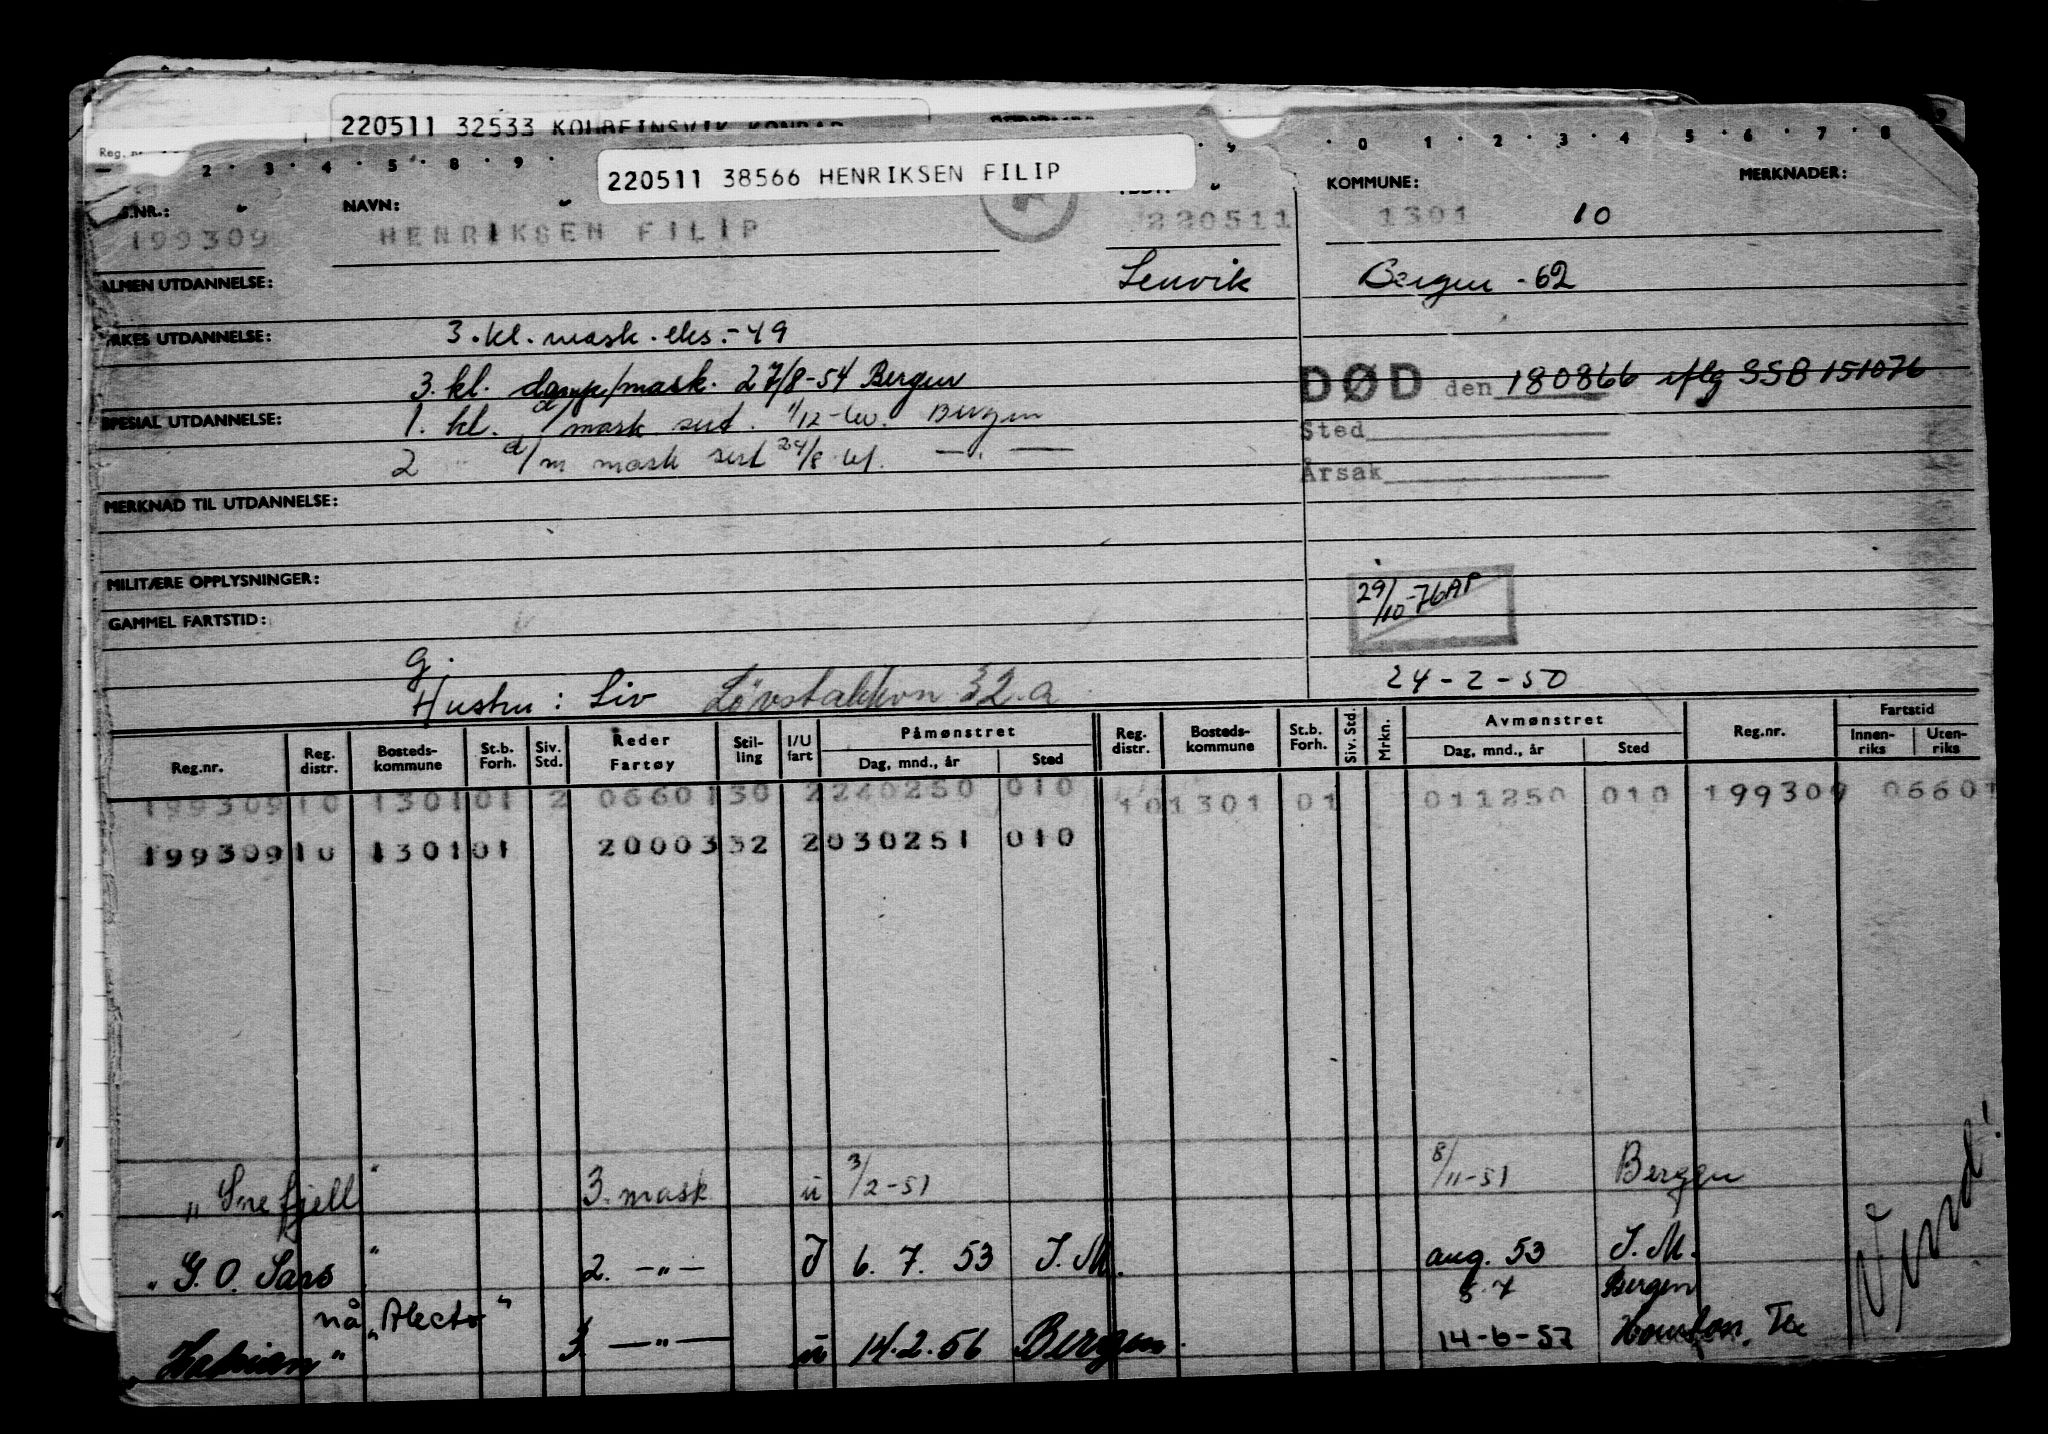 220511 32533 KOLBEINSVIK KONRAD
Reg. nr
2 3 4 5 8 9 0 1 2 3 4 5 6 7 8
220511 38566 HENRIKSEN FILIP
NAVN: KOMMUNE: MERKNADER:
199309 HENRIKSEN FILIP 220511 1301 10
ALMEN UTDANNELSE: Lenvik Bergen - 62
YRKES UTDANNELSE: 3. kl. mask. eks. - 49
3. kl. damp/mask. 27/8-54 Bergen DØD den 180866 iflg SSB 151076
SPESIAL UTDANNELSE: 1. kl. d/ mask sert. 1/12- Bergen Sted
2 d/m mask sert 24/8 Årsak
MERKNAD TIL UTDANNELSE:
MILITÆRE OPPLYSNINGER:
29/10-76 AP
GAMMEL FARTSTID:
g.
24-2-50
Hustru: Liv Løvstakkvn 32.a
Reg.nr. Reg. distr. Bosteds-kommune St.b. Forh. Siv. Std. Reder Fartøy Stil-ling I/U fart Påmønstret Dag, mnd., år Sted Reg. distr. Bosteds-kommune St.b. Forh. Siv. Std. Mrkn. Avmønstret Dag, mnd., år Sted Reg.nr. Fartstid Innen-riks Uten-riks
199309 10 1301 01 2 06601 30 2 240250 010 10 1301 01 011250 010 199309 06601
199309 10 1301 01 20003 32 2 030251 010
"Snefjell" 3. mask u 3/2-51 8/11-51 Bergen
"G. O. Sars" 2. -"- I 6. 7. 53 I. M. aug. 53 I. M.
5-7 Bergen
nå "Alecto"
3. -"- u 14.2.56 Bergen. 14-6-57 Houston, Tex
Vend!